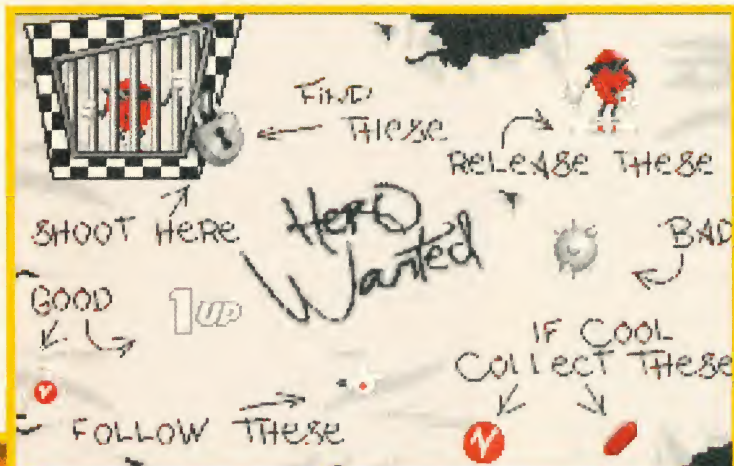 FIND
THESE
RELEASE THESE
SHOOT HERE
HERO
Wanted
BAD
GOOD
1UP
IF COOL
COLLECT THESE
FOLLOW THESE